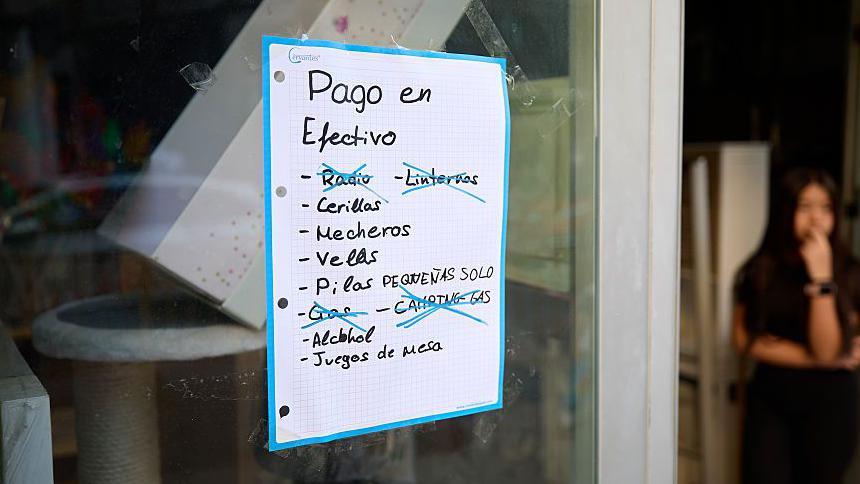 Cervantes
Pago en
Efectivo
- Radio - Linternas
- Cerillas
- Mecheros
- Vellas
- Pilas PEQUEÑAS SOLO
- Gas - CAMPING-GAS
- Alcohol
- Juegos de mesa